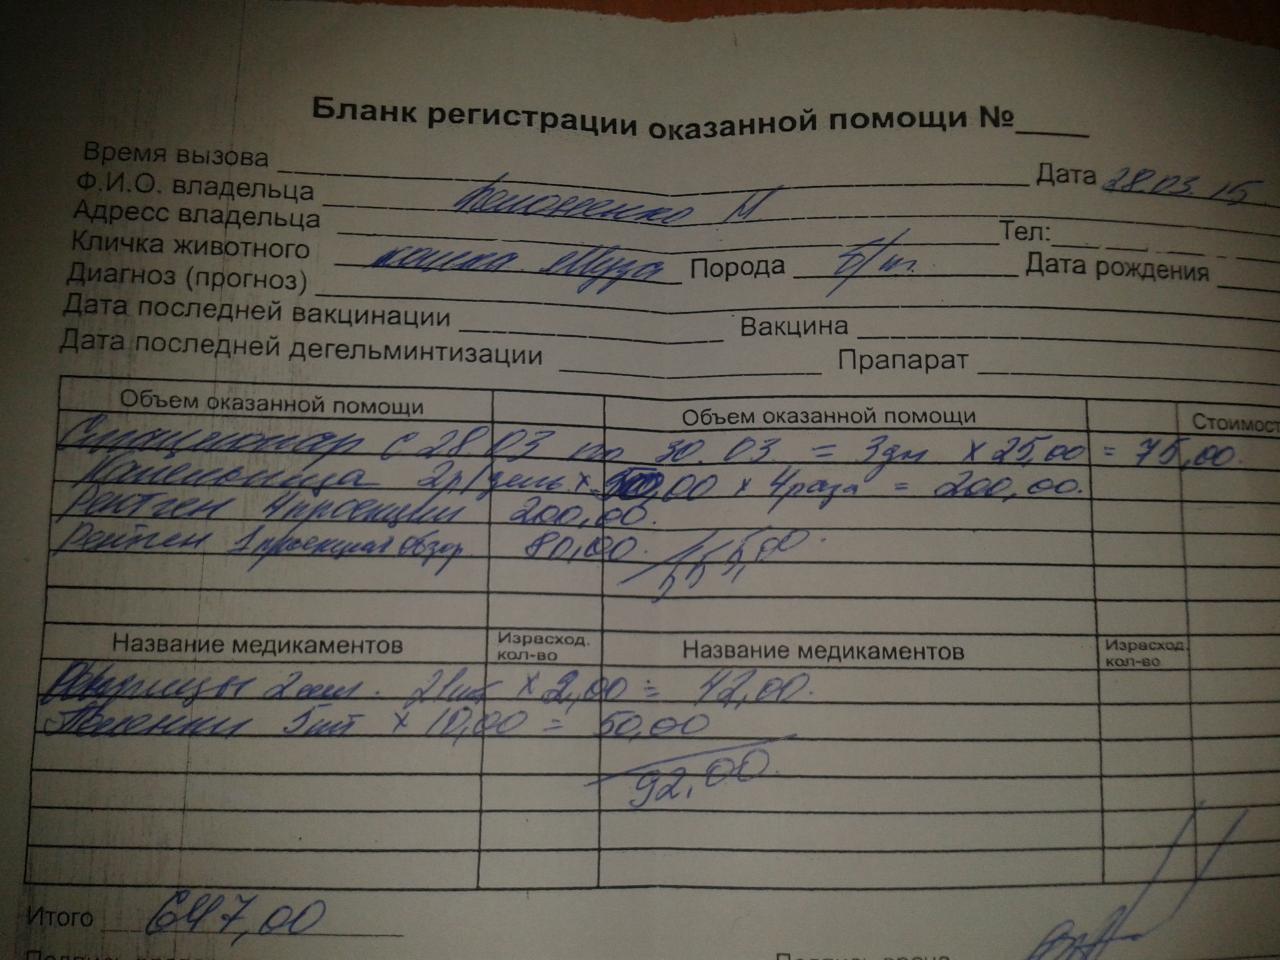 Бланк регистрации оказанной помощи №____
Время вызова Дата 28.03.15
Ф.И.О. владельца М
Адресс владельца Тел:
Кличка животного кошка Муза Порода б/п. Дата рождения
Диагноз (прогноз)
Дата последней вакцинации Вакцина
Дата последней дегельминтизации Прапарат
Объем оказанной помощи Объем оказанной помощи Стоимост
Стационар с 28.03 по 30.03 = 3дн x 25,00 = 75,00.
Капельница 2р/день x 50,00 x 4раза = 200,00.
Рентген 4проекции 200,00.
Рентген 1проекция обзор 80,00. 555,00.
Название медикаментов Израсход. кол-во Название медикаментов Израсход. кол-во
Шприцы 2мл. 21шт x 2,00 = 42,00.
Пеленки 5шт x 10,00 = 50,00
92,00.
Итого 647,00